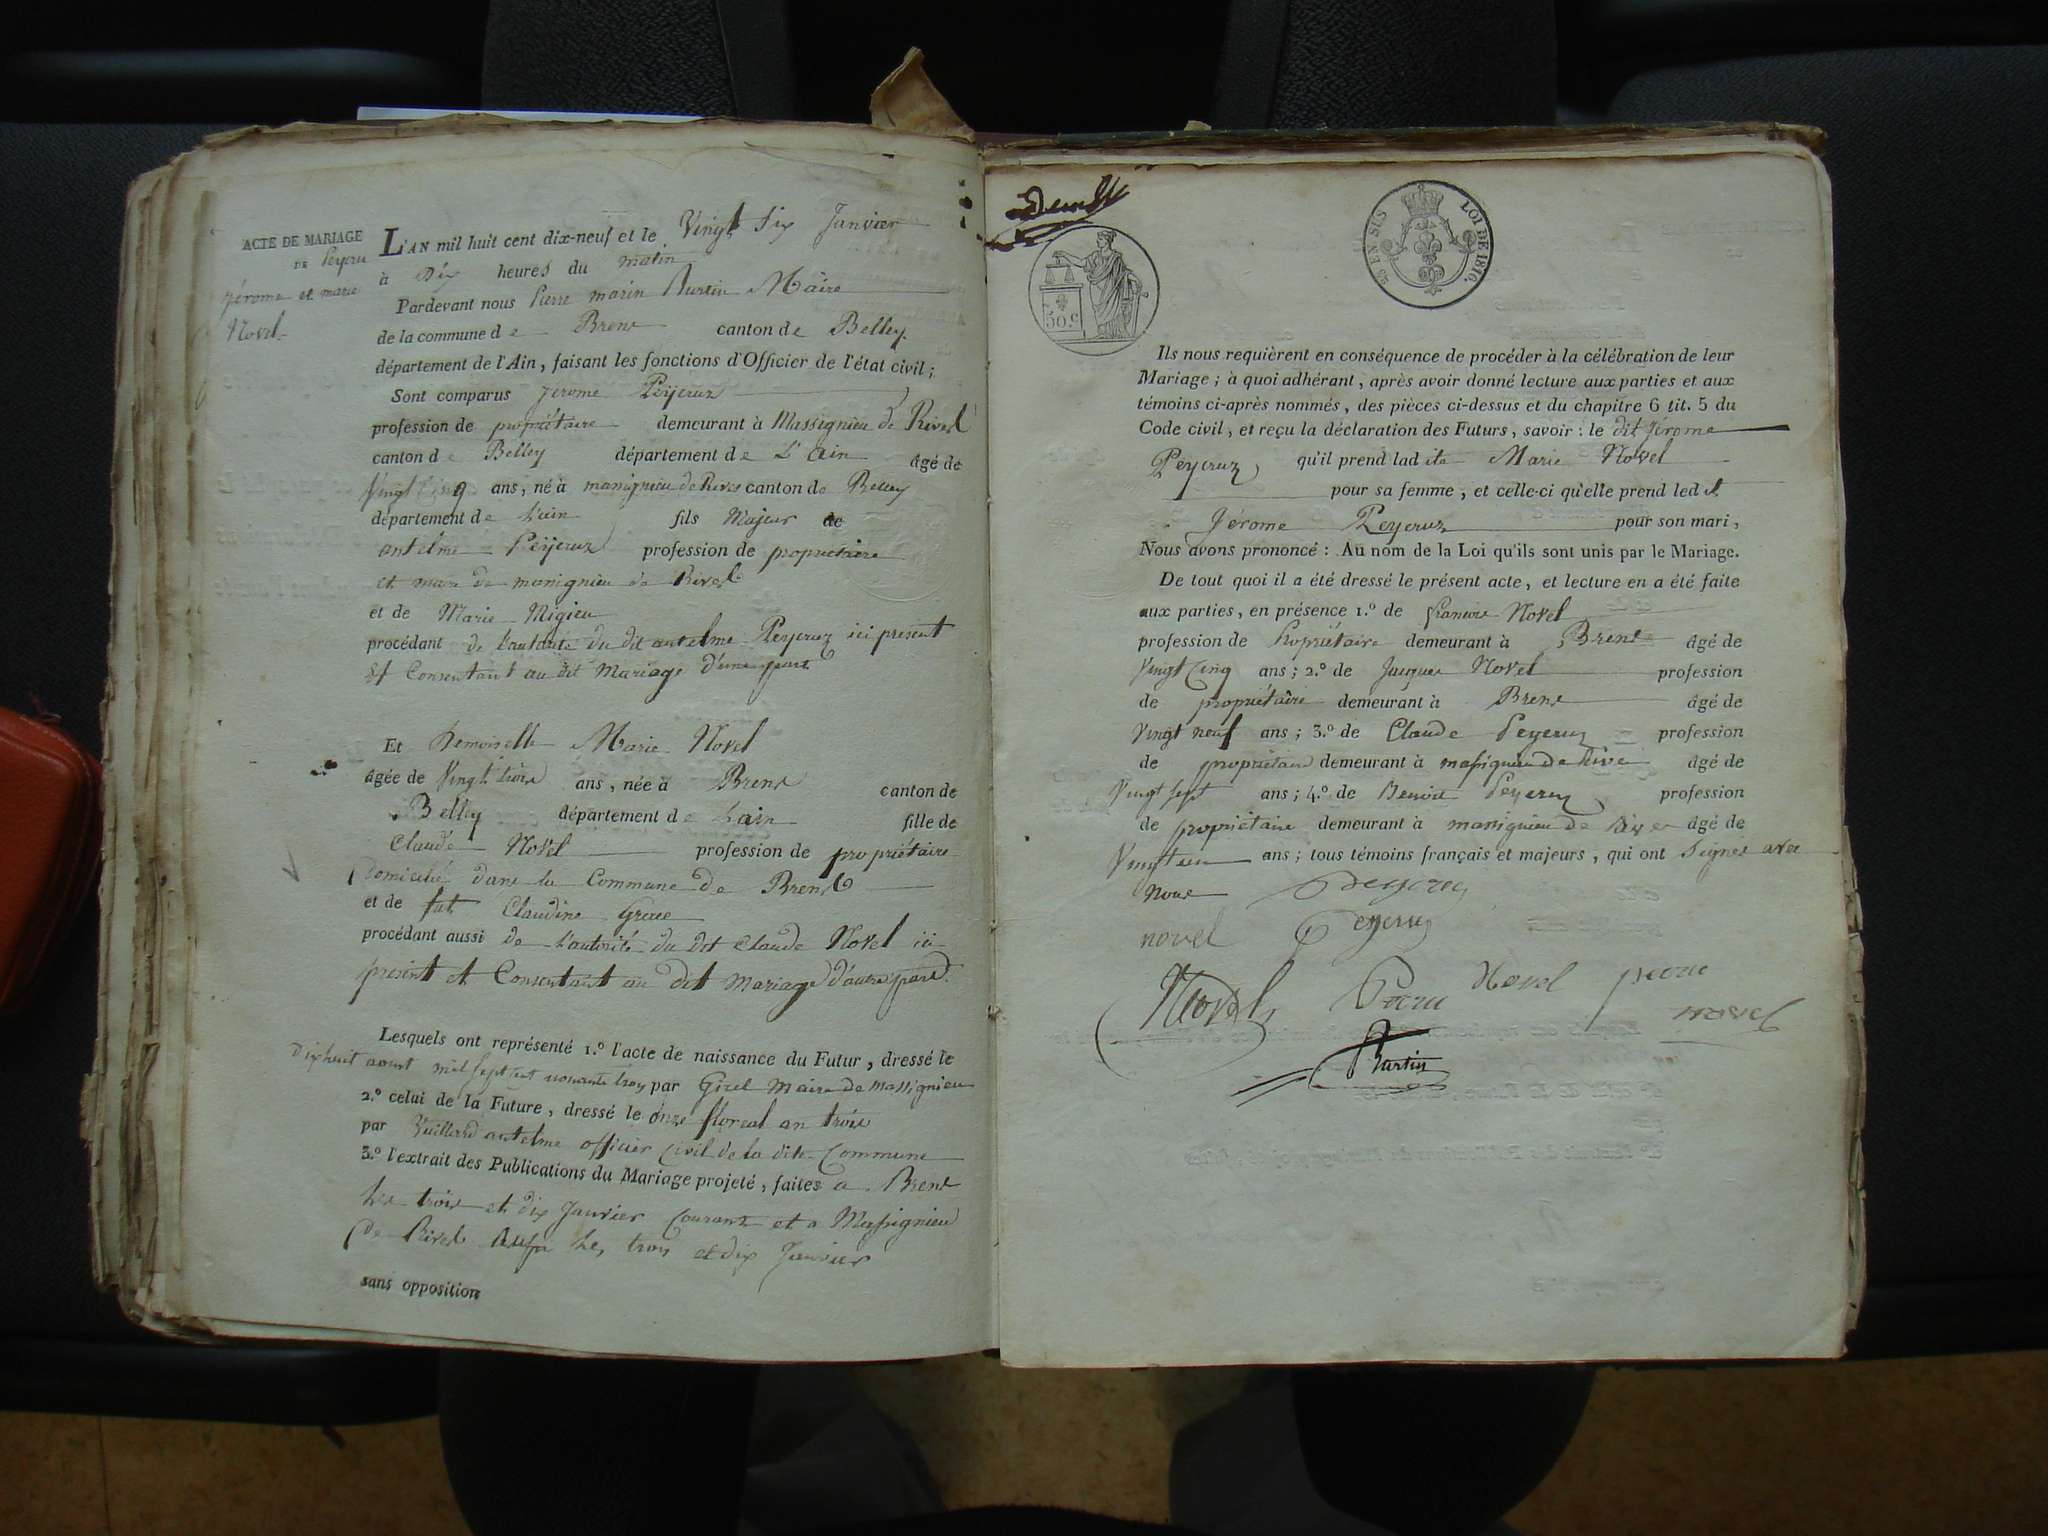 ACTE DE MARIAGE
DE Peycru
Jérome et marie
Novel
L'AN mil huit cent dix-neuf et le Vingt Six Janvier
à Dix heures du matin
Pardevant nous Pierre marin Burtin Maire
de la commune de Brens canton de Belley
département de l'Ain, faisant les fonctions d'Officier de l'état civil;
Sont comparus Jerome Peycruz
profession de propriétaire demeurant à Massignieu de Rives
canton de Belley département de L'ain âgé de
Vingt cinq ans, né à massignieu de Rives canton de Belley
département de L'ain fils Majeur de
antelme Peycruz profession de propriétaire
et maire de massignieu de Rives
et de Marie Migieu
procédant de l'autorité du dit antelme Peycruz ici present
et Consentant au dit Mariage d'une part
Et Demoiselle Marie Novel
âgée de Vingt trois ans, née à Brens canton de
Belley département de Lain fille de
Claude Novel profession de propriétaire
Domicilié dans la Commune de Brens
et de fut Claudine
procédant aussi de L'autorité du dit Claude Novel ici
présent et Consentant au dit mariage d'autre part.
Lesquels ont représenté 1.º l'acte de naissance du Futur, dressé le
dixhuit aoust mil sept cent nonante trois par Girel maire de massignieu
2.º celui de la Future, dressé le onze floreal an trois
par Vuillerd antelme officier civil de la dite Commune
3.º l'extrait des Publications du Mariage projeté, faites a Brens
Les trois et dix Janvier Courant et a Massignieu
de Rives aussi les trois et dix Janvier
sans opposition
50.c
EN SUS
LOI DE 1816.
Ils nous requièrent en conséquence de procéder à la célébration de leur
Mariage; à quoi adhérant, après avoir donné lecture aux parties et aux
témoins ci-après nommés, des pièces ci-dessus et du chapitre 6 tit. 5 du
Code civil, et reçu la déclaration des Futurs, savoir: le dit Jérome
Peycruz qu'il prend ladite Marie Novel
pour sa femme, et celle-ci qu'elle prend ledit
Jérome Peycruz pour son mari,
Nous avons prononcé: Au nom de la Loi qu'ils sont unis par le Mariage.
De tout quoi il a été dressé le présent acte, et lecture en a été faite
aux parties, en présence 1.º de francois Novel
profession de Propriétaire demeurant à Brens âgé de
Vingt cinq ans; 2.º de Jacques Novel profession
de propriétaire demeurant à Brens âgé de
Vingt neuf ans; 3.º de Claude Peycruz profession
de propriétaire demeurant à massignieu de Rives âgé de
Vingt sept ans; 4.º de Benoit Peycruz profession
de propriétaire demeurant à massignieu de Rives âgé de
Vingt un ans; tous témoins français et majeurs, qui ont Signés avec
nous Peycruz
novel Peycruz
Novel Novel
novel
Burtin